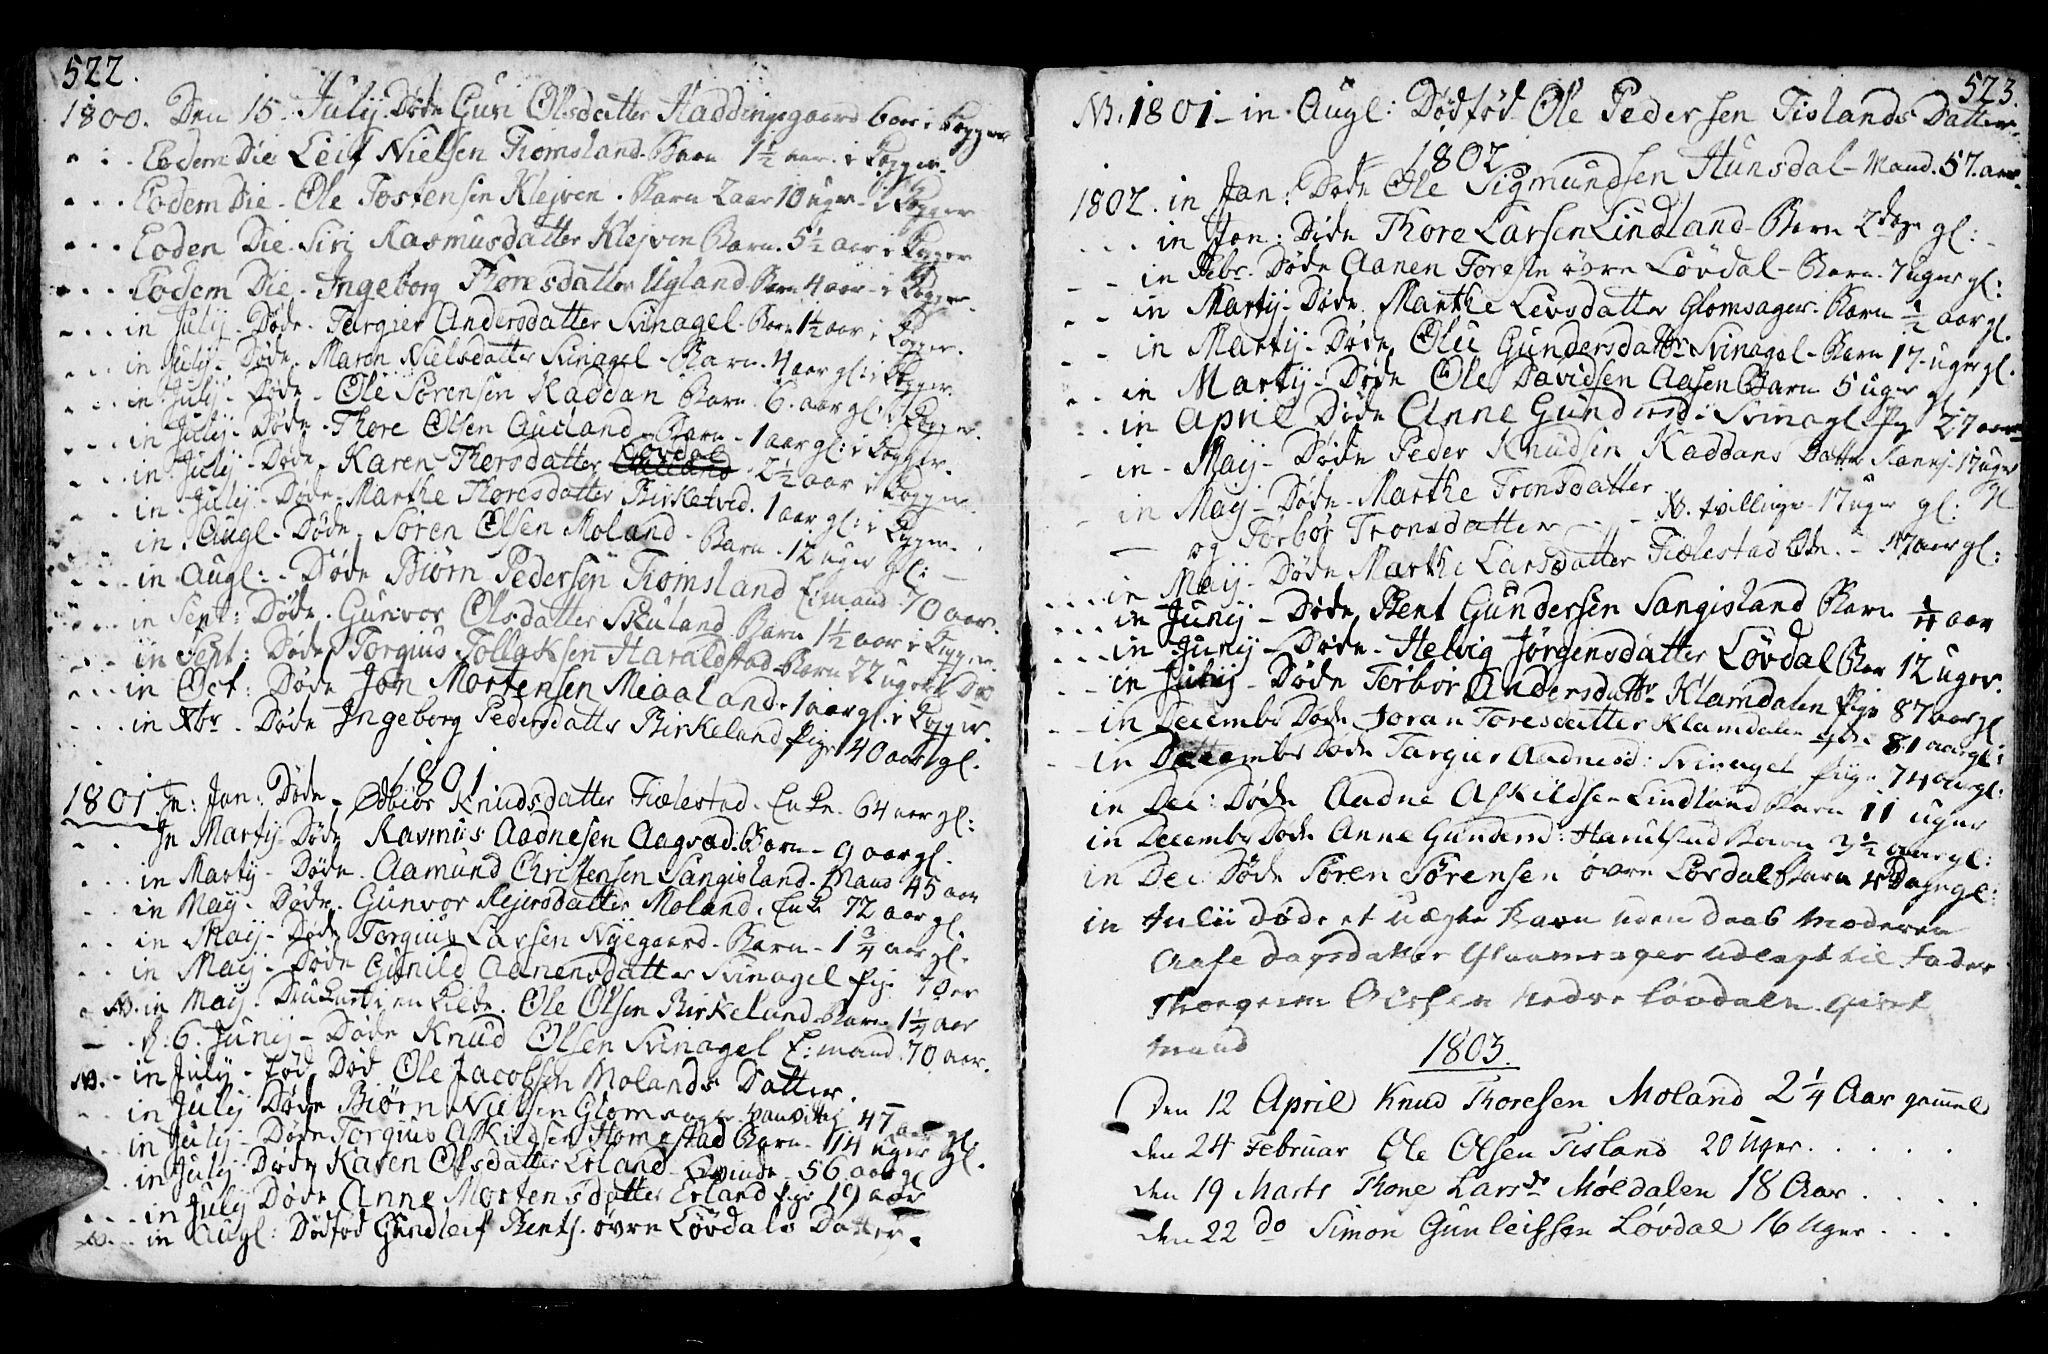 522.
1800. Den 15. Julij Døde Guri Olsdatter Haddingsgaard 6 aar i Kopper
Eodem Die Leif Nielsen Tiomsland Barn 1½ aar i Kopper.
Eodem Die - Ole Tostensen Klejven. Barn 2 aar 10 uger i Kopper
Eoden Die. Siri Rasmusdatter Klejven Barn. 5½ aar i Kopper
Eodem Die - Ingeborg Thoresdatter Ugland Barn 4 aar - i Kopper.
in Julij Døde. Targier Andersdatter Svinagel - Barn 1½ aar i Kopper.
in July - Døde. Maren Nielsdatter Svinagel - Barn. 4 aar gl: i Kopper.
in July - Døde - Ole Sørensen Kaddan Barn. 6. aar gl: i Kopper.
in Julij - Døde - Thore Olsen Aueland - Barn - 1 aar gl: i Kopper.
in July - Døde - Karen Thorsdatter Løvdal - 2½ aar i Kopper.
in Julij - Døde - Marthe Thoresdatter Birketvid. 1 aar gl: i Kopper.
in Augl - Døde. Søren Olsen Moland - Barn - 12 uger gl: -
in Augl: - Døde Biørn Pedersen Tiomsland E: mand 70 aar.
in Sept: Døde. Gunvor Olsdatter Skuland Barn 1½ aar i Kopper.
in Sept: Døde Torgius Tollaksen Haraldstad Barn 22 uger
in Oct: Døde Jon Mortensen Meaaland - 1 aar gl: i Kopper.
in Xbr - Døde Ingeborg Pedersdatter Birkeland Pige 40 aar gl.
1801
1801 Jn: Jan: Døde - Ødbiør Knudsdatter Fiælestad - Enke. 64 aar gl:
Jn Martij - Døde Rasmus Aadnesen Aagsad. Barn - 9 aar gl.
in Martij - Døde. Aamund Christensen Sangisland - Mand 45 aar
in Maij - Døde. Gunvor Rejersdatter Moland. Enke 72 aar gl.
in Maij - Døde Torgius Larsen Nyegaard - Barn - 1¾ aar gl.
in Maij - Døde Gunild Aanensdatter Svinagel Pige 70 er
NB. in Maij - Druknet i en Kilde. Ole Olsen Birkeland Barn 1¼ aar
d. 6. Junij - Døde Knud Olsen Svinagel E: mand. 70 aar.
NB. - in July - fød Død Ole Jacobsen Molands Datter.
in Julij Døde Biørn Nielsen Glomsager 47 aar gl:
in July - Døde Torgius Askildsen Homestad Barn - 14 uger gl.
in July - Døde Karen Olsdatter Erland - Qvinde - 56 aar gl
in Julij Døde Anne Mortensdatter Erland Pige 19 aar
NB. - in Augl: Dødfød Gundleif Bents. øvre Løvdals Datter.
523.
NB. 1801 - in Augl: Dødfød Ole Pedersen Tislands Datter.
1802
1802. in Jan: Døde Ole Sigmundsen Hunsdal - Mand. 57. aar.
in Jan: Døde Thore Larsen Lindland - Barn 2 dage gl: -
in Febr. Døde Aanen Toresen øvre Løvdal - Barn. 7 uger gl:
in Martij - Døde Marthe Levsdatter Glomsager. Barn ½ aar gl.
in Martij - Døde Olu Gundersdattr Svinagel - Barn 17 uger gl.
in Martij - Døde Ole Davidsen Aasen Barn 5 uger gl.
in April Døde Anne Gunders d: Svinagl Pig 27 aar
in - Maij - Døde Peder Knudsen Kaddans Datter 17 uger gl
in Maij - Døde - Marthe Tronsdatter
og Torbor Tronsdatter - - - NB. tvillinger 17 uger gl:
in Maij - Døde Marthe Larsdatter Fiælestad - 47 aar gl:
in Junij - Døde Bent Gundersen Sangisland Barn ¼ aar
in Junij - Døde - Helvig Jørgensdatter Løvdal Bar 12 uger.
in Julij - Døde Torbor Andersdattr Klamdalen Pige 87 aar gl
in Decembr Døde Joran Toresdatter Klamdalen 81 aar gl:
in Decembr Døde Targier Aadnesd: Svinagel Pige 74 aar gl:
in Dec: Døde Aadne Askildsen Lindland Barn 11 uger
in Decembr Døde Anne Gundersd: Harulstad Barn 3½ aar gl:
in Dec: Døde Søren Sørensen øvre Løvdal Barn 4 Dage gl:
in Julii døde et uægte Barn uden daab Moderen
Aase Dagsdatter Glaamsager udlagt til Fader
Thorgrim Olsen Nedre Løvdalen. gift
mand
1803.
Den 12 April Knud Thoresen Moland 2¼ Aar gammel
den 24 Februar Ole Olsen Tisland 20 Uger . . . . .
den 19 Marts Thone Larsdr Møldalen 18 Aar . . . .
den 22 do Simon Gunleifssen Løvdal 16 Uger . . .